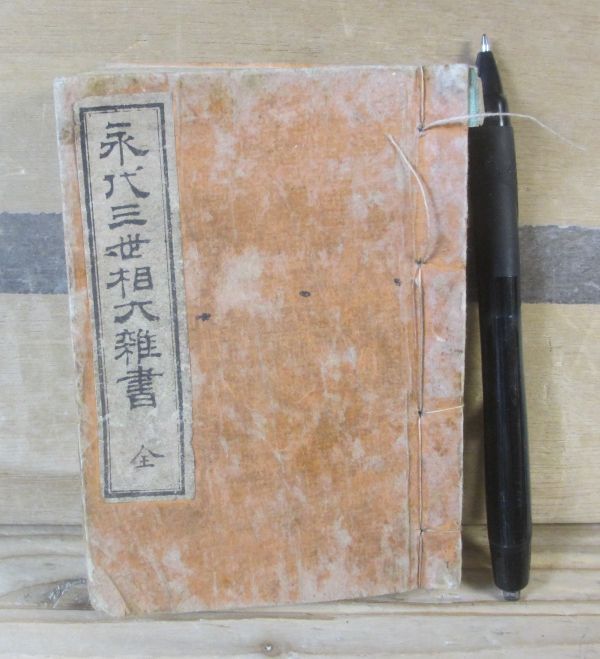 永代三世相大雑書
全